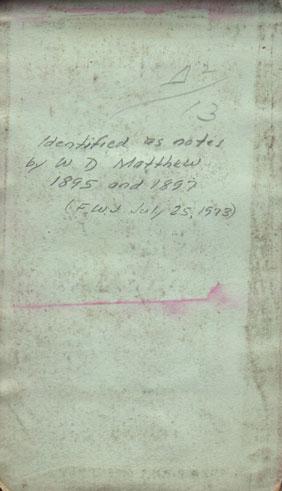 13
Identified as notes
by W D Matthew
1895 and 1897
(F.W.J July 25, 1973)